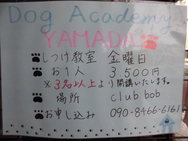 Dog Academy
YAMADA
しつけ教室 金曜日
お1人 3,500円
※3名以上より開講いたします。
場所 club.bob
お申し込み 090-8466-6161